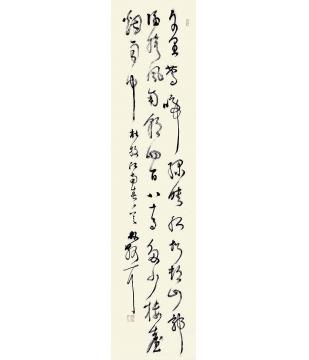 千里鶯啼綠映紅水村山郭
酒旗風南朝四百八十寺多少樓臺
煙雨中 杜牧江南春